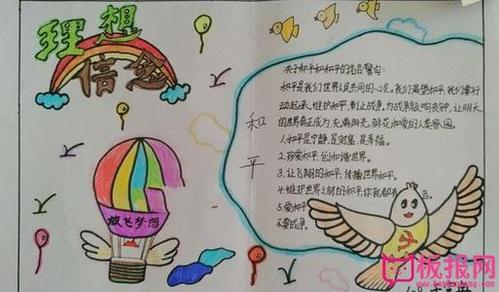 理想
信念
放飞梦想
和
平
关于和平和和平的格言警句:
和平是我们世界人民共同的心愿,我们渴望和平,我们要行
动起来,维护和平,制止战争,为战争敲响丧钟,让明天
的世界真正成为,充满阳光,鲜花和爱的人类家园。
1.和平是宁静,是财富,是幸福。
2.珍爱和平,创和谐世界。
3.让飞翔的和平,传播世界和平。
4.维护世界之树的和平,你我都有
言。
5.爱和平
不要战争。
板报网